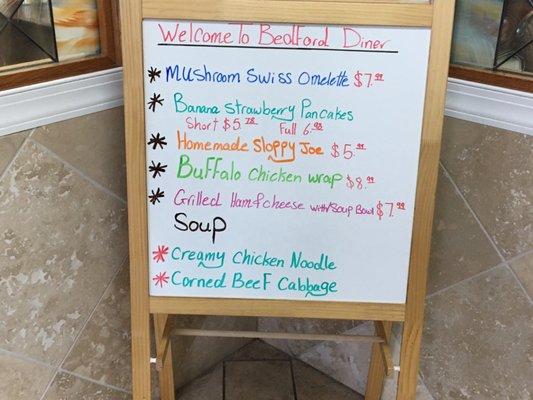 Welcome To Bedford Diner
* Mushroom Swiss Omelette $7.99
* Banana Strawberry Pancakes
Short $5.78 Full 6.98
* Homemade Sloppy Joe $5.99
* Buffalo Chicken wrap $8.99
* Grilled Ham & cheese with Soup Bowl $7.99
Soup
* Creamy Chicken Noodle
* Corned Beef Cabbage